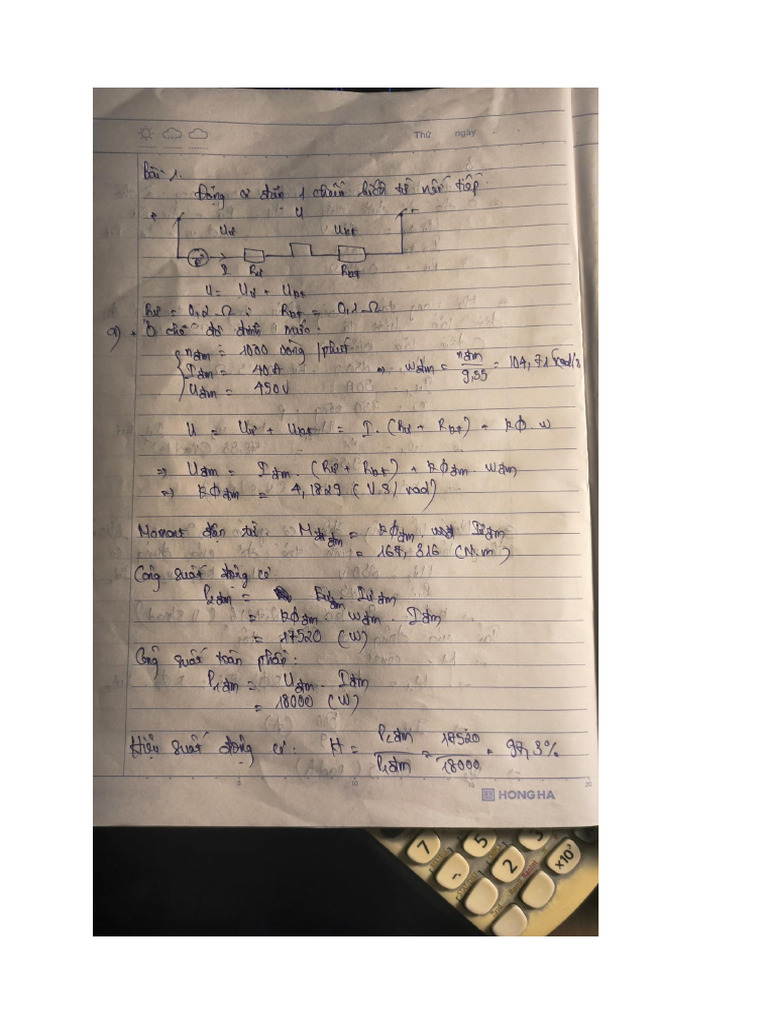 Thứ ngày
Bài 1.
Động cơ điện 1 chiều kích từ nối tiếp
+ U +
Uư Ukt
E I Rư Rkt
U = Uư + Ukt
Rư = 0,2 Ω ; Rkt = 0,1 Ω
a) + Ở chế độ định mức:
nđm = 1000 vòng/phút
Iđm = 40A => ωđm = nđm/9,55 = 104,71 rad/s
Uđm = 450V
U = Uư + Ukt = I. (Rư + Rkt) + kϕ.ω
=> Uđm = Iđm. (Rư + Rkt) + kϕđm. ωđm
=> kϕđm = 4,1829 (V.s/rad)
Moment điện từ: Mđtđm = kϕđm Iưđm
= 167,316 (N.m)
Công suất động cơ
P2đm = Eưđm. Iưđm
= kϕđm. ωđm. Iđm
= 17520 (W)
Công suất toàn phần:
P1đm = Uđm. Iđm
= 18000 (W)
Hiệu suất động cơ: H = P2đm/P1đm = 17520/18000 = 97,3%
5 10 15 20
HONG HA
7 5 3
- 2 x10ˣ